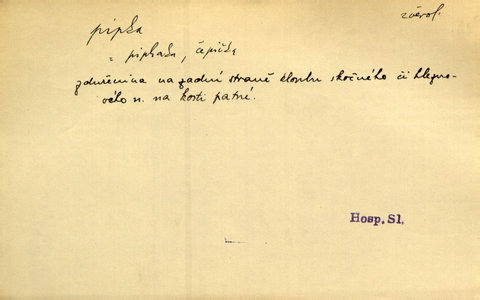 zvěrol.
pipka
= piphaka, čepička
zduřenina na zadní straně kloubu skočného či hlezno-
vého n. na kosti patní.
Hosp. Sl.